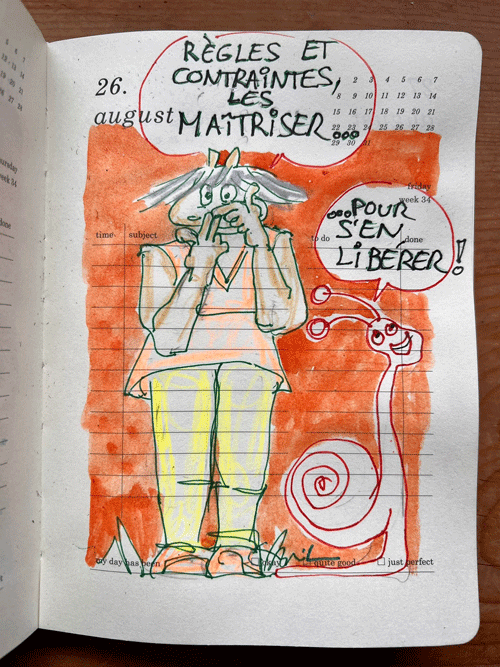 RÈGLES ET
CONTRAINTES,
LES
MAÎTRISER...
26.
august
2 3 4 5 6 7
8 9 10 11 12 13 14
15 16 17 18 19 20 21
22 23 24 25 26 27 28
29 30 31
friday
week 34
...POUR
S'EN
LIBÉRER!
time subject to do done
my day has been okay quite good just perfect